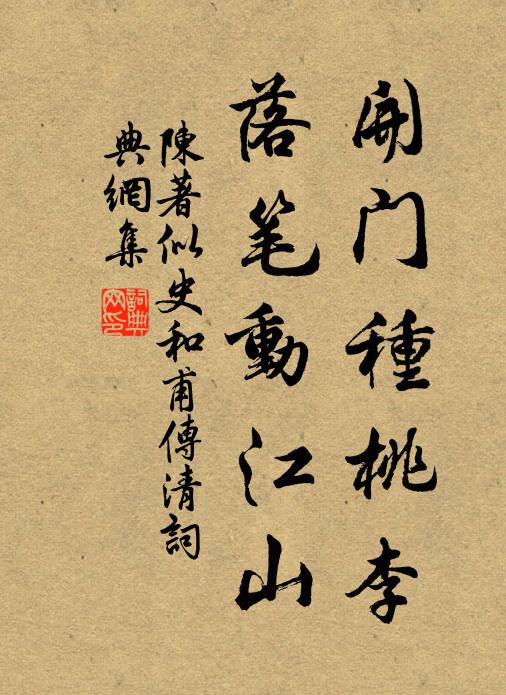 開门種桃李
落笔動江山
陳著似史和甫傳清詞
典網集
詞典網印